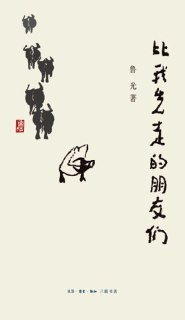 比我先走的朋友们
鲁光 著
生活·读书·新知 三联书店